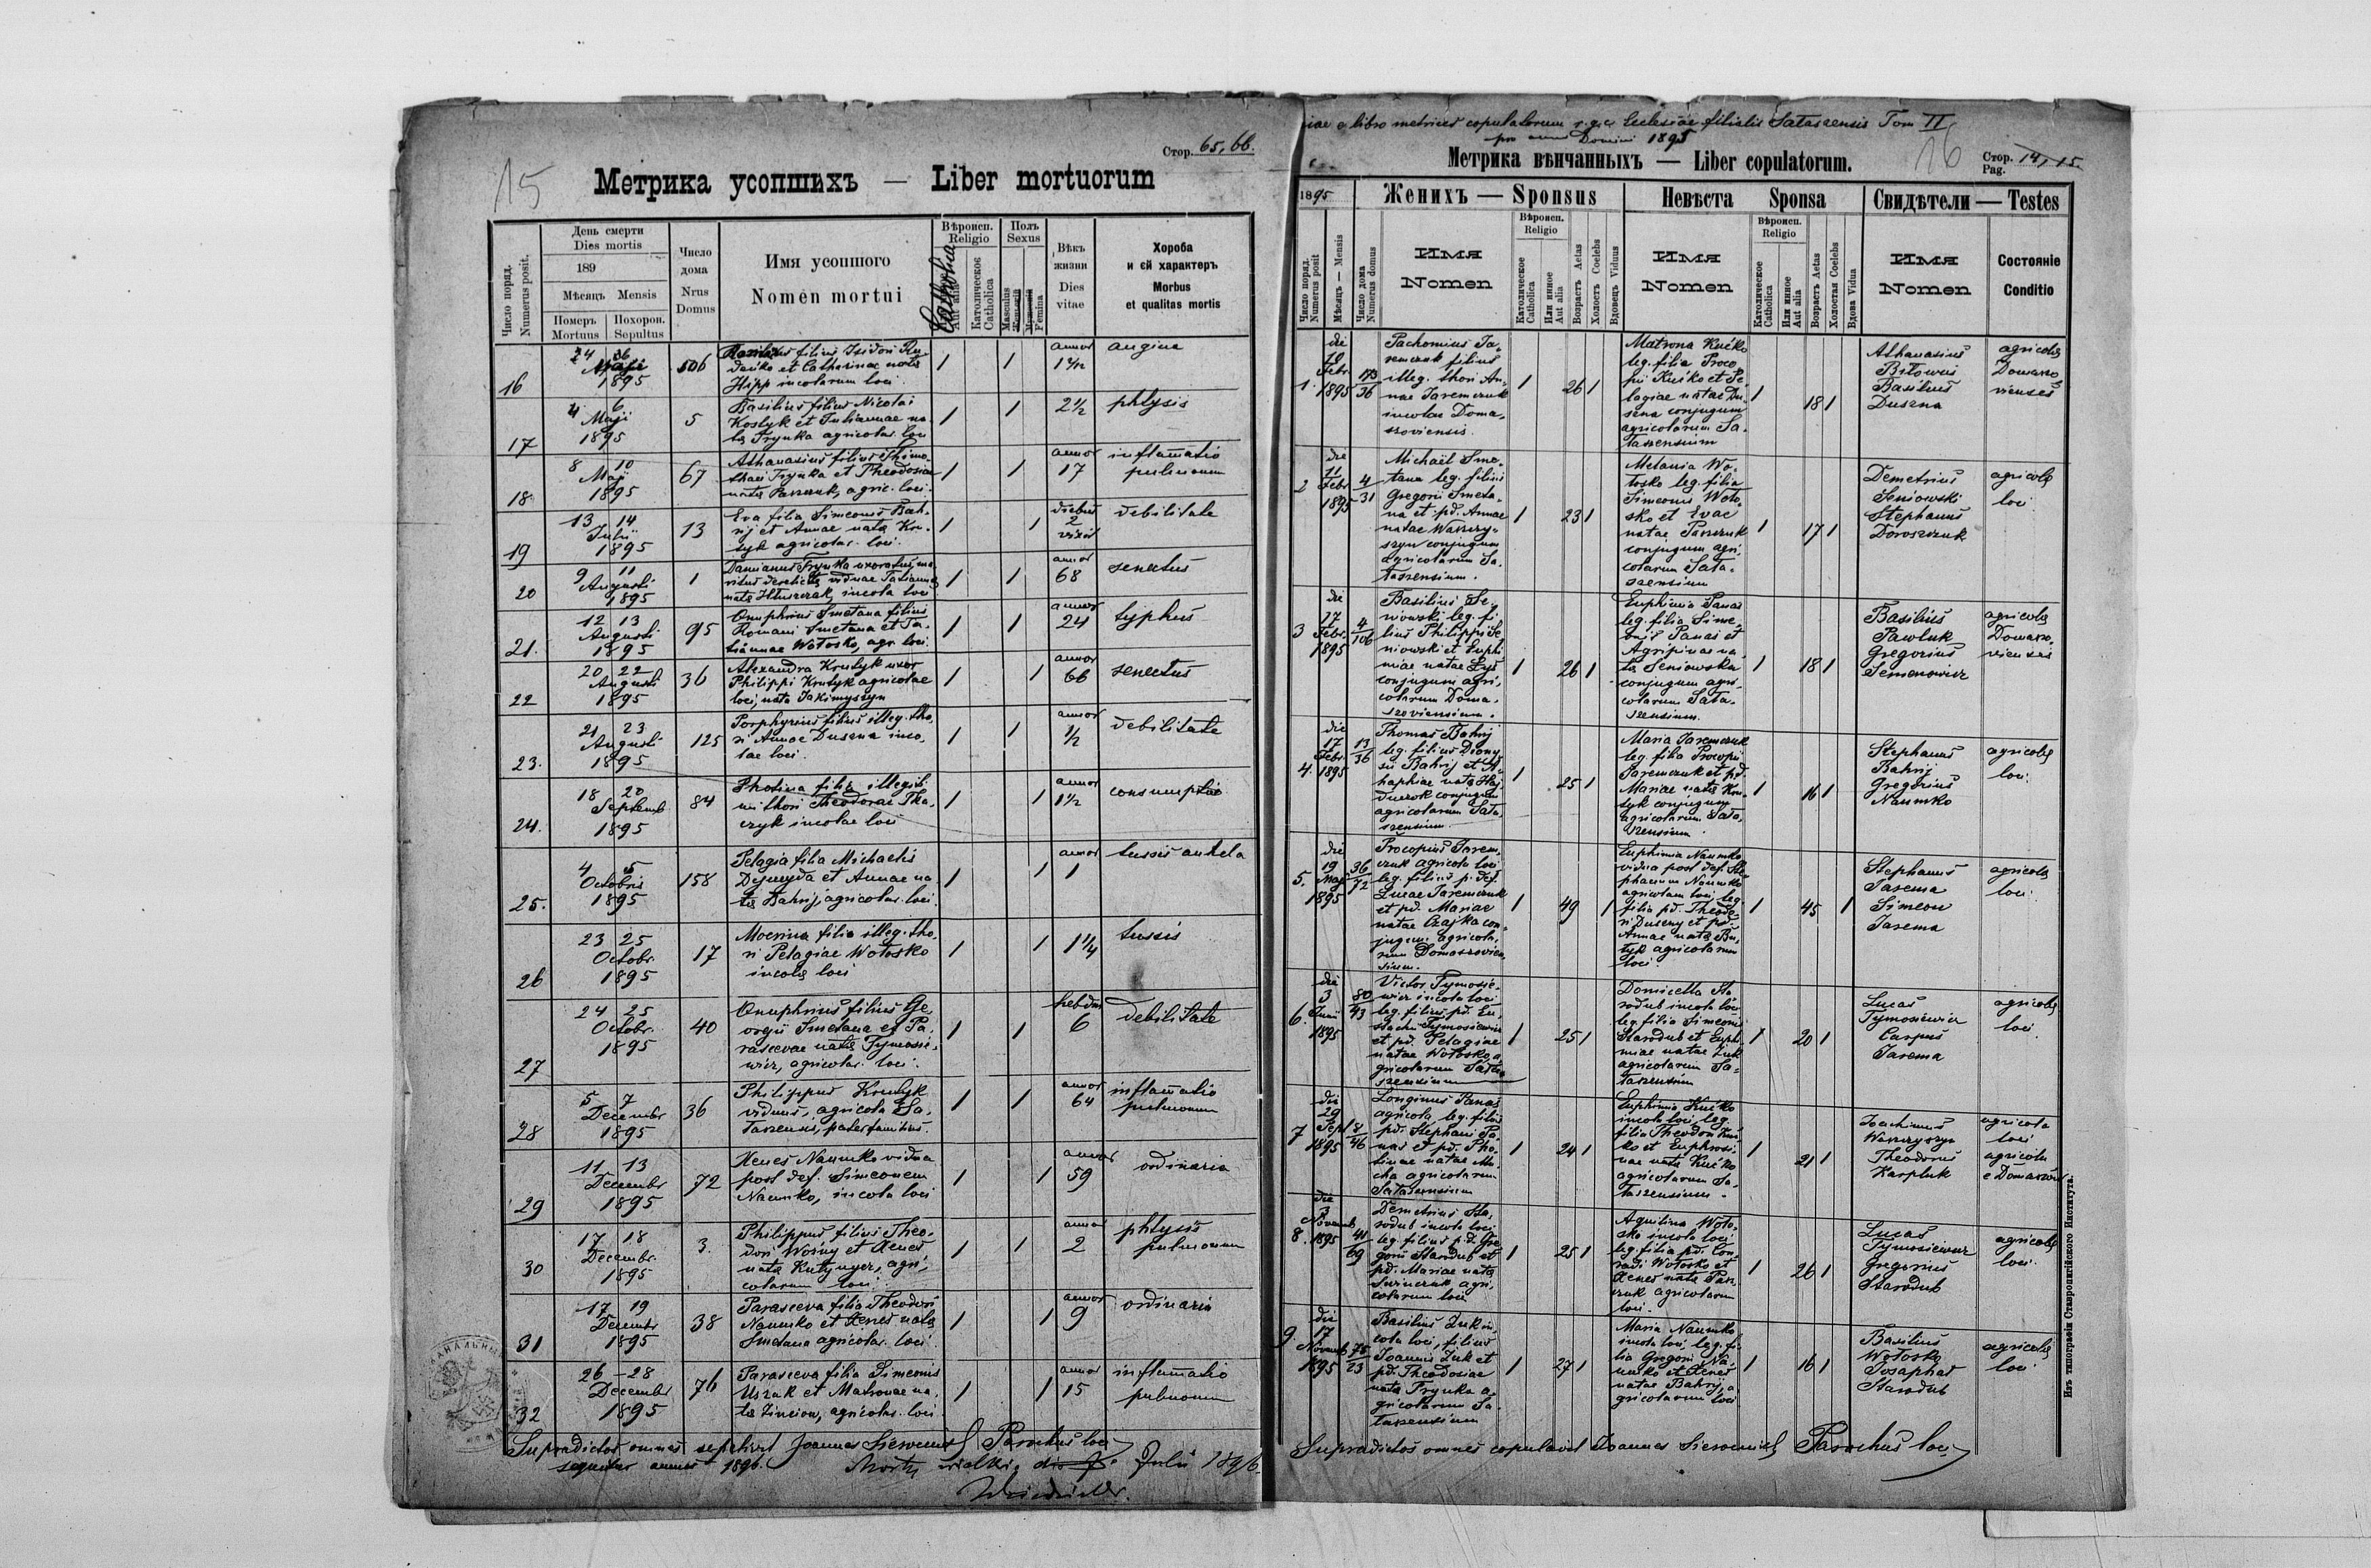 15
Стор. 65, 66.
Метрика усопшихъ — Liber mortuorum
Число поряд.
Numerus posit.
День смерти
Dies mortis
189
Мѣсяцъ Mensis
Померъ
Mortuus
Похорон.
Sepultus
Число
дома
Nrus
Domus
Имя усопшого
Nomen mortui
Вѣроисп.
Religio
Catholica
Aut alia
Католическое
Catholica
Полъ
Sexus
Masculus
Femina
Вѣкъ
жизни
Dies
vitae
Хороба
и єй характеръ
Morbus
et qualitas mortis
16
24 26
Maji
1895
506
Basilius filius Isidori Ru-
dańko et Catharinae nata
Hipp incolarum loci
1 1
annor
angina
17
4 6
Maji
1895
5
Basilius filius Nicolai
Kostyk et Juliannae na-
ta Frynka agricolar. loci
1 1
2½
phtysis
18
8 10
Maji
1895
67
Athanasius filius Thimo-
thaei Frynka et Theodosiae
nata Paszczuk, agric. loci
1 1
annor
17
inflamatio
pulmonum
19
13 14
Julii
1895
13
Eva filia Simeonis Bah-
rij et Annae nata Kru-
tyk agricolar. loci
1 1
diebus
2
vixit
debilitate
20
9 11
Augusti
1895
1
Damianus Frynka uxoratus, ma-
ritus derelictae viduae Tatiannae
nata Hluszczak, incola loci
1 1
annor
68
senectus
21.
12 13
Augusti
1895
95
Onuphrius Smetana filius
Romani Smetana et Ta-
tiannae Wołosko, agr. loci.
1 1
annor
24
typhus
22
20 22
Augusti
1895
36
Alexandra Krutyk uxor
Philippi Krutyk agricolae
loci, nata Jakimyszyn
1 1
annor
66
senectus
23.
21 23
Augusti
1895
125
Porphyrius filius illeg. tho-
ri Annae Duszna inco-
lae loci.
1 1
annor
½
debilitate
24.
18 20
Septemb
1895
84
Photina filia illegiti-
mi thori Theodorae Tka-
czyk incolae loci
1 1
annor
1½
consumptio
25.
4 5
Octobris
1895
158
Pelagia filia Michaelis
et Annae na-
ta Bahrij, agricolar. loci.
1 1
annor
1
tussis anhela
26
23 25
Octobr.
1895
17
Mocrina filia illeg. tho-
ri Pelagiae Wołosko
incola loci
1 1
1¼
tussis
27
24 25
Octobr.
1895
40
Onuphrius filius Ge-
orgii Smetana et Pa-
rascevae nata Tymosie-
wicz, agricolar. loci.
1 1
hebdom
6
debilitate
28
5 7
Decembr
1895
36
Philippus Krutyk
viduus, agricola Sa-
taszensis, paterfamilias.
1 1
annor
64
inflamatio
pulmonum
29
11 13
Decembr
1895
72
Xenes Naumko vidua
post def. Simeonem
Naumko, incola loci
1 1
annor
59
ordinaria
30
17 18
Decembr.
1895
3.
Philippus filius Theo-
dori Woźny et Xenes
nata agri-
colarum loci.
1 1
annor
2
phtysis
pulmonum
31
17 19
Decembr
1895
38
Parasceva filia Theodori
Naumko et Xenes nata
Smetana agricolar. loci.
1 1
annor
9
ordinaria
32
26 – 28
Decembr
1895
76
Parasceva filia Simeonis
et Matronae na-
ta agricolar. loci.
1 1
annor
15
inflamatio
pulmonum
Supradictos omnes sepelivit Joannes Parochus loci
sequitur annus 1896.
Julii 1896.
e libro metrices copulatorum r.g.c. Ecclesiae filialis Tom II
pro anno Domini 1895
Метрика вѣнчанныхъ — Liber copulatorum.
16
Стор.
Pag. 14, 15.
1895
Женихъ — Sponsus
Невѣста Sponsa
Свидѣтели — Testes
Число поряд.
Numerus posit
Мѣсяцъ — Mensis
Число дома
Numerus domus
Имя
Nomen
Вѣроисп.
Religio
Католическое
Catholica
Или инное
Aut alia
Возрастъ Aetas
Холостъ Coelebs
Вдовецъ Viduus
Имя
Nomen
Вѣроисп.
Religio
Католическое
Catholica
Или инное
Aut alia
Возрастъ Aetas
Холостая Coelebs
Вдова Vidua
Имя
Nomen
Состоянiе
Conditio
1.
die
10
Febr.
1895
Pachomius Ja-
remczuk filius
illeg. thori An-
nae Jaremczuk
incolae Doma-
szoviensis.
1 26 1
Matrona Kućko
leg. filia Proco-
pii Kućko et Pe-
lagiae natae Du-
szna conjugum
agricolarum Sa-
taszensium
1 18 1
Athanasius
Basilius
Duszna
agricola
Domaszo-
vienses
2
die
11
Febr.
1895
4
31
Michaël Sme-
tana leg. filius
Gregorii Smeta-
na et pd. Annae
natae Waszczy-
szyn conjugum
agricolarum Sa-
taszensium.
1 23 1
Melania Wo-
łosko leg. filia
Simeonis Woło-
sko et Evae
natae Paszczuk
conjugum agri-
colarum Sata-
szensium
1 17 1
Demetrius
Seniowski
Stephanus
Doroszczuk
agricola
loci
3
die
17
Febr.
1895
4
106
Basilius Se-
niowski leg. fi-
lius Philippi Se-
niowski et Euphi-
miae natae
conjugum agri-
colarum Doma-
szoviensium.
1 26 1
Euphimia Panas
leg. filia Sime-
onis Panas et
Agripinae na-
ta Seniowska
conjugum agri-
colarum Sata-
szensium.
1 18 1
Basilius
Pawluk
Gregorius
Semenowicz
agricola
Domaszo-
vienses
4.
die
17
Febr.
1895
13
36
Thomas Bahrij
leg. filius Diony-
sii Bahrij et A-
haphiae nata
conjugum
agricolarum Sata-
szensium.
1 25 1
Maria Jaremczuk
leg. filia Procopii
Jaremczuk et pd.
Mariae nata Kru-
tyk conjugum
agricolarum Sata-
szensium.
1 16 1
Stephanus
Bahrij
Gregorius
Naumko
agricola
loci
5.
die
19
Maji
1895
36
72
Procopius Jarem-
czuk agricola loci
leg. filius p. def.
Lucae Jaremczuk
et pd. Mariae
natae Czajka con-
jugum agricola-
rum Domaszovien-
sium.
1 49 1
Euphimia Naumko
vidua post def. Ste-
phanum Naumko
agricolam loci, leg.
filia pd. Theodo-
ri Duszny et pd.
Annae nata
agricolarum
loci.
1 45 1
Stephanus
Jarema
Simeon
Jarema
agricola
loci
6.
die
3
Junii
1895
80
43
Victor Tymosie-
wicz incola loci
leg. filius pd. Eu-
stachii Tymosiewicz
et pd. Pelagiae
natae Wołosko, a-
gricolarum Sata-
szensium
1 25 1
Domicella Sta-
rodub incola loci
leg. filia Simeonis
Starodub et Euphi-
miae natae Żuk
agricolarum Sa-
taszensium
1 20 1
Lucas
Tymosiewicz
Carpus
Jarema
agricola
loci
7
die
29
Sept
1895
8
46
Longinus Panas
agricola, leg. filius
pd. Stephani Pa-
nas et pd. Pho-
tinae natae Mo-
cha agricolarum
Sataszensium
1 24 1
Euphimia Kućko
incola loci, leg.
filia Theodori Kuć-
ko et Euphrosi-
nae nata Kućko
agricolarum Sa-
taszensium.
1 21 1
Joachimus
Waszczyszyn
Theodorus
Karpluk
agricola
loci
agricola
e Domaszów
8.
die
3
Novemb
1895
41
69
Demetrius Sta-
rodub incola loci
leg. filius pd. Gre-
gorii Starodub et
pd. Mariae nata
agri-
colarum loci
1 25 1
Aquilina Woło-
sko incola loci
leg. filia pd. Con-
radi Wołosko et
Xenes nata Pasz-
czuk agricolarum
loci.
1 26 1
Lucas
Tymosiewicz
Gregorius
Starodub
agricola
loci
9
die
17
Novemb
1895
75
23
Basilius Żuk in-
cola loci, filius
Joannis Żuk et
pd. Theodosiae
nata Frynka a-
gricolarum Sa-
taszensium
1 27 1
Maria Naumko
incola loci, leg. fi-
lia Gregorii Na-
umko et Xenes
natae Bahrij, a-
gricolarum loci
1 16 1
Basilius
Wołosko
Josaphat
Starodub
agricola
loci
Supradictos omnes copulavit Joannes Parochus loci
Изъ типографiи Ставропигiйского Института.